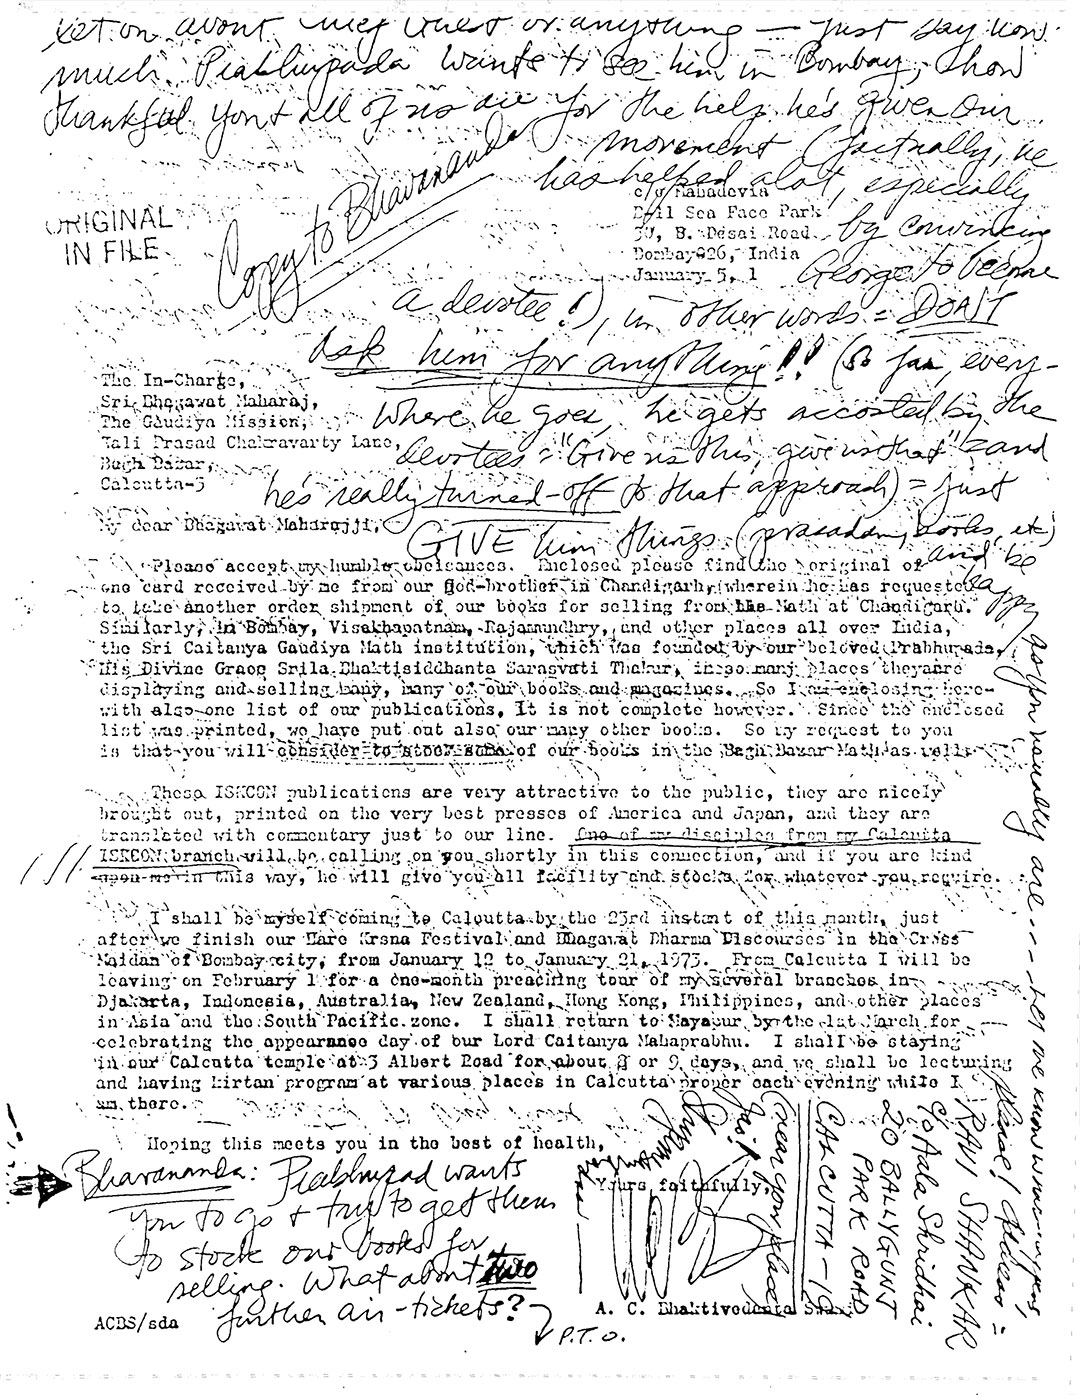 yet on about chief guest or anything — just say how
much Prabhupada wants to see him in Bombay, + how
thankful you + all of us are for the help he's given our
movement (factually, he
has helped alot, especially
by convincing
George to become
a devotee!), in other words = DON'T
ask him for anything!! (So far, every-
where he goes, he gets accosted by the
devotees = "Give us this, give us that" and
he's really turned-off to that approach) = just
GIVE him things (prasadam, books, etc)
and be
happy, as you usually are---
Copy to Bhavananda
ORIGINAL
IN FILE
c/o Mahadevia
Sea Face Park
50, B. Desai Road
Bombay 026, India
January 5,
The In-Charge,
Sri Bhagawat Maharaj,
The Gaudiya Mission,
Kali Prasad Chakravarty Lane,
Bagh Bazar,
Calcutta-3
My dear Bhagawat Maharajji,
Please accept my humble obeisances. Enclosed please find the original of
one card received by me from our god-brother in Chandigarh, wherein he has requested
to take another order shipment of our books for selling from the Math at Chandigarh.
Similarly, in Bombay, Visakhapatnam, Rajamundhry, and other places all over India,
the Sri Caitanya Gaudiya Math institution, which was founded by our beloved Prabhupada,
His Divine Grace Srila Bhaktisiddhanta Sarasvati Thakur, in so many places they are
displaying and selling many, many of our books and magazines. So I am enclosing here-
with also one list of our publications, It is not complete however. Since the enclosed
list was printed, we have put out also our many other books. So my request to you
is that you will consider to stock some of our books in the Bagh Bazar Math as well.
These ISKCON publications are very attractive to the public, they are nicely
brought out, printed on the very best presses of America and Japan, and they are
translated with commentary just to our line. One of my disciples from my Calcutta
ISKCON branch will be calling on you shortly in this connection, and if you are kind
upon me in this way, he will give you all facility and stocks for whatever you require.
I shall be myself coming to Calcutta by the 23rd instant of this month, just
after we finish our Hare Krsna Festival and Bhagawat Dharma Discourses in the Cross
Maidan of Bombay city, from January 12 to January 21, 1973. From Calcutta I will be
leaving on February 1 for a one-month preaching tour of my several branches in
Djakarta, Indonesia, Australia, New Zealand, Hong Kong, Philippines, and other places
in Asia and the South Pacific zone. I shall return to Mayapur by the 1st March for
celebrating the appearance day of our Lord Caitanya Mahaprabhu. I shall be staying
in our Calcutta temple at 3 Albert Road for about 8 or 9 days, and we shall be lecturing
and having kirtan program at various places in Calcutta proper each evening while I
am there.
Hoping this meets you in the best of health,
Yours faithfully,
A. C. Bhaktivedanta Swami
ACBS/sda
Bhavananda: Prabhupad wants
you to go + try to get them
to stock our books for
selling. What about two
further air-tickets?
P.T.O.
please! Address =
RAVI SHANKAR
c/o Aala Shridhai
20 BALLYGUNJ
PARK ROAD
CALCUTTA-19
(near your place)